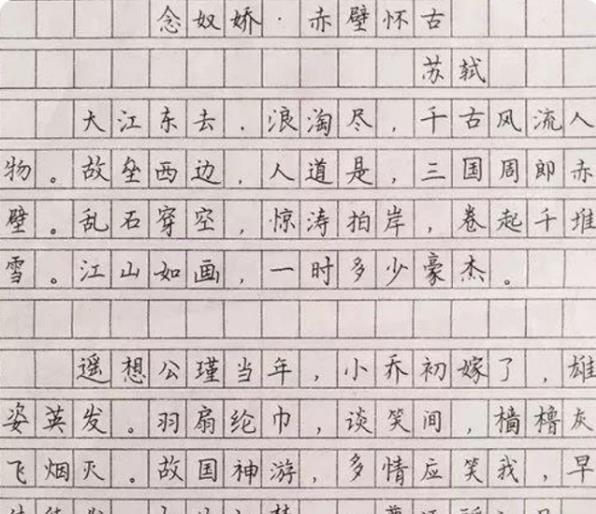 念奴娇·赤壁怀古
苏轼
大江东去，浪淘尽，千古风流人
物。故垒西边，人道是，三国周郎赤
壁。乱石穿空，惊涛拍岸，卷起千堆
雪。江山如画，一时多少豪杰。
遥想公瑾当年，小乔初嫁了，雄
姿英发。羽扇纶巾，谈笑间，樯橹灰
飞烟灭。故国神游，多情应笑我，早